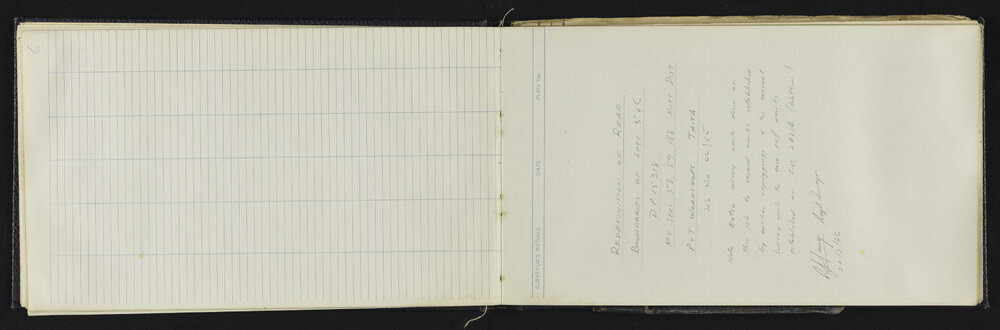 6
SURVEYOR'S INITIALS DATE PLAN No.
REDEFINITION OF REAR
BOUNDARIES OF LOTS 5 & C
D P 15318
PT SECS 58 59 186 HUTT DIST
P & T WORKSHOPS TAITA
Job No 66/55
Note Extra survey work done on
this job to record marks established
by earlier repeggings & to connect
survey work to some ref marks
established on S.O. 24218
20/5/66